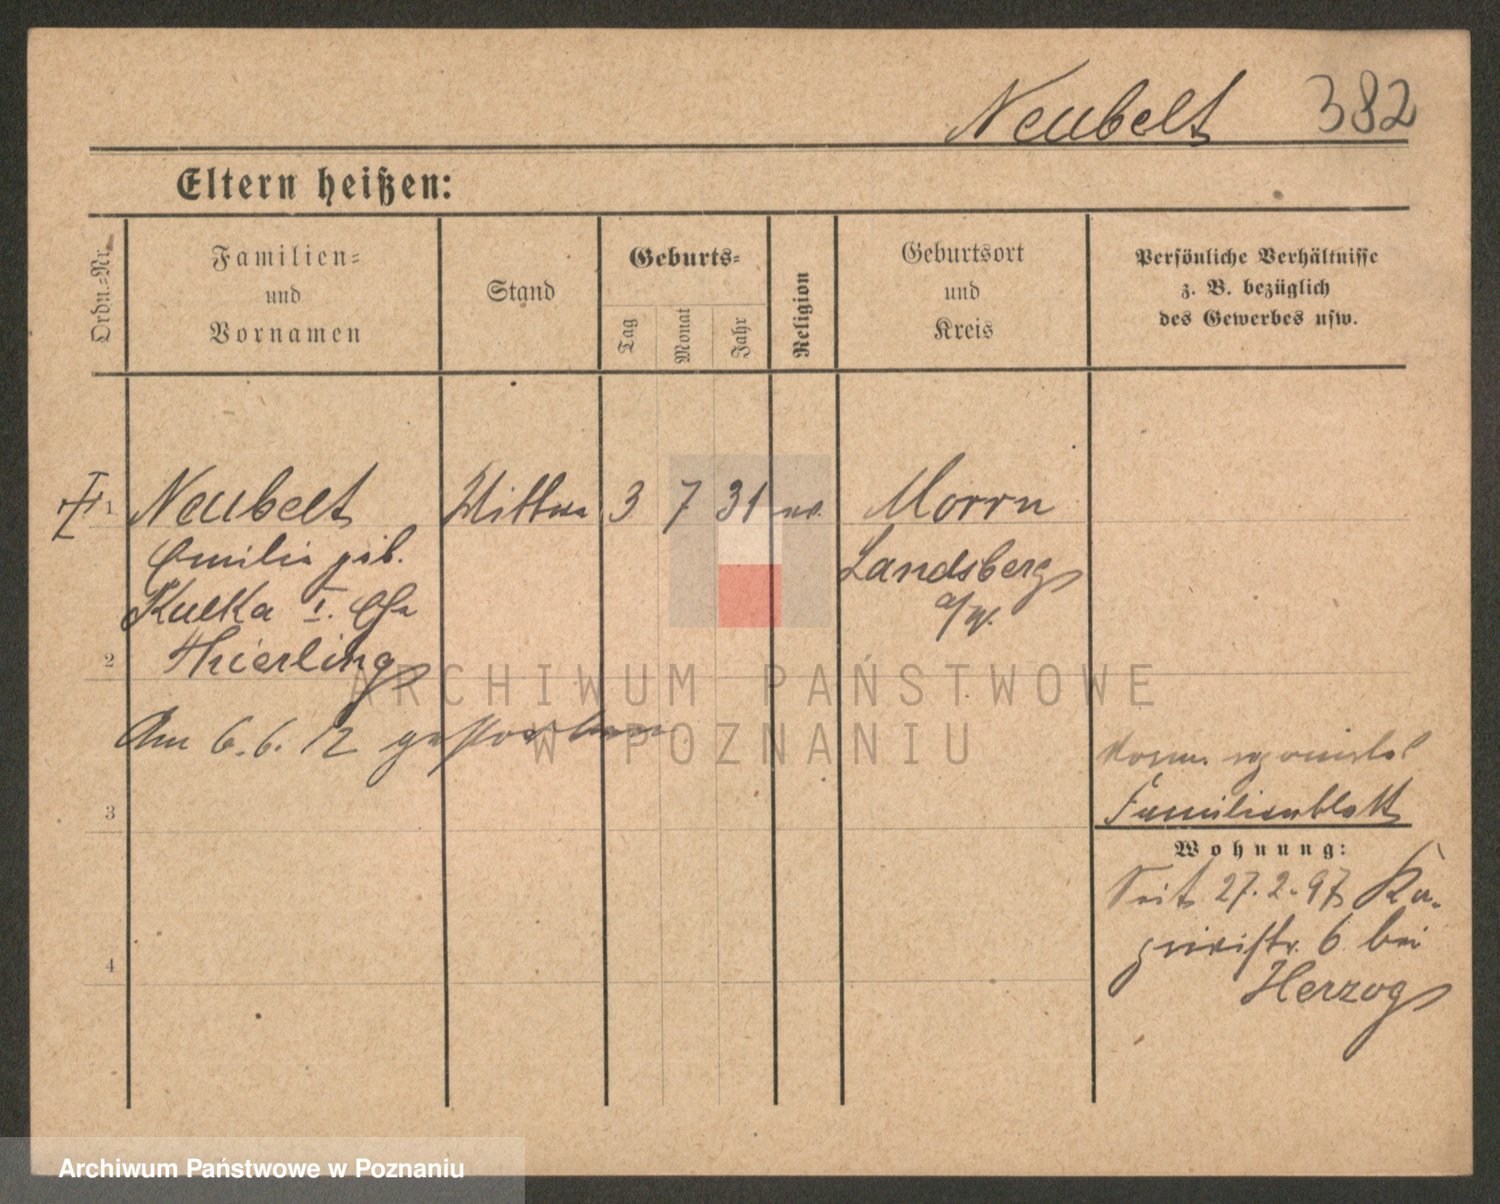 Neubelt 382
Eltern heißen:
Ordn.-Nr.
Familien-
und
Vornamen
Stand
Geburts-
Tag
Monat
Jahr
Religion
Geburtsort
und
Kreis
Persönliche Verhältnisse
z. B. bezüglich
des Gewerbes usw.
1 Neubelt Wittwe 3 7 31 ev. Morrn
Emilie geb. Landsberg
Kulka I. Ehe a/W.
2 Thierling
Am 6.6.12 gestorben
3 Familienblatt
Wohnung:
Seit 27.2.97
6 bei
4 Herzog
ARCHIWUM PAŃSTWOWE
W POZNANIU
Archiwum Państwowe w Poznaniu